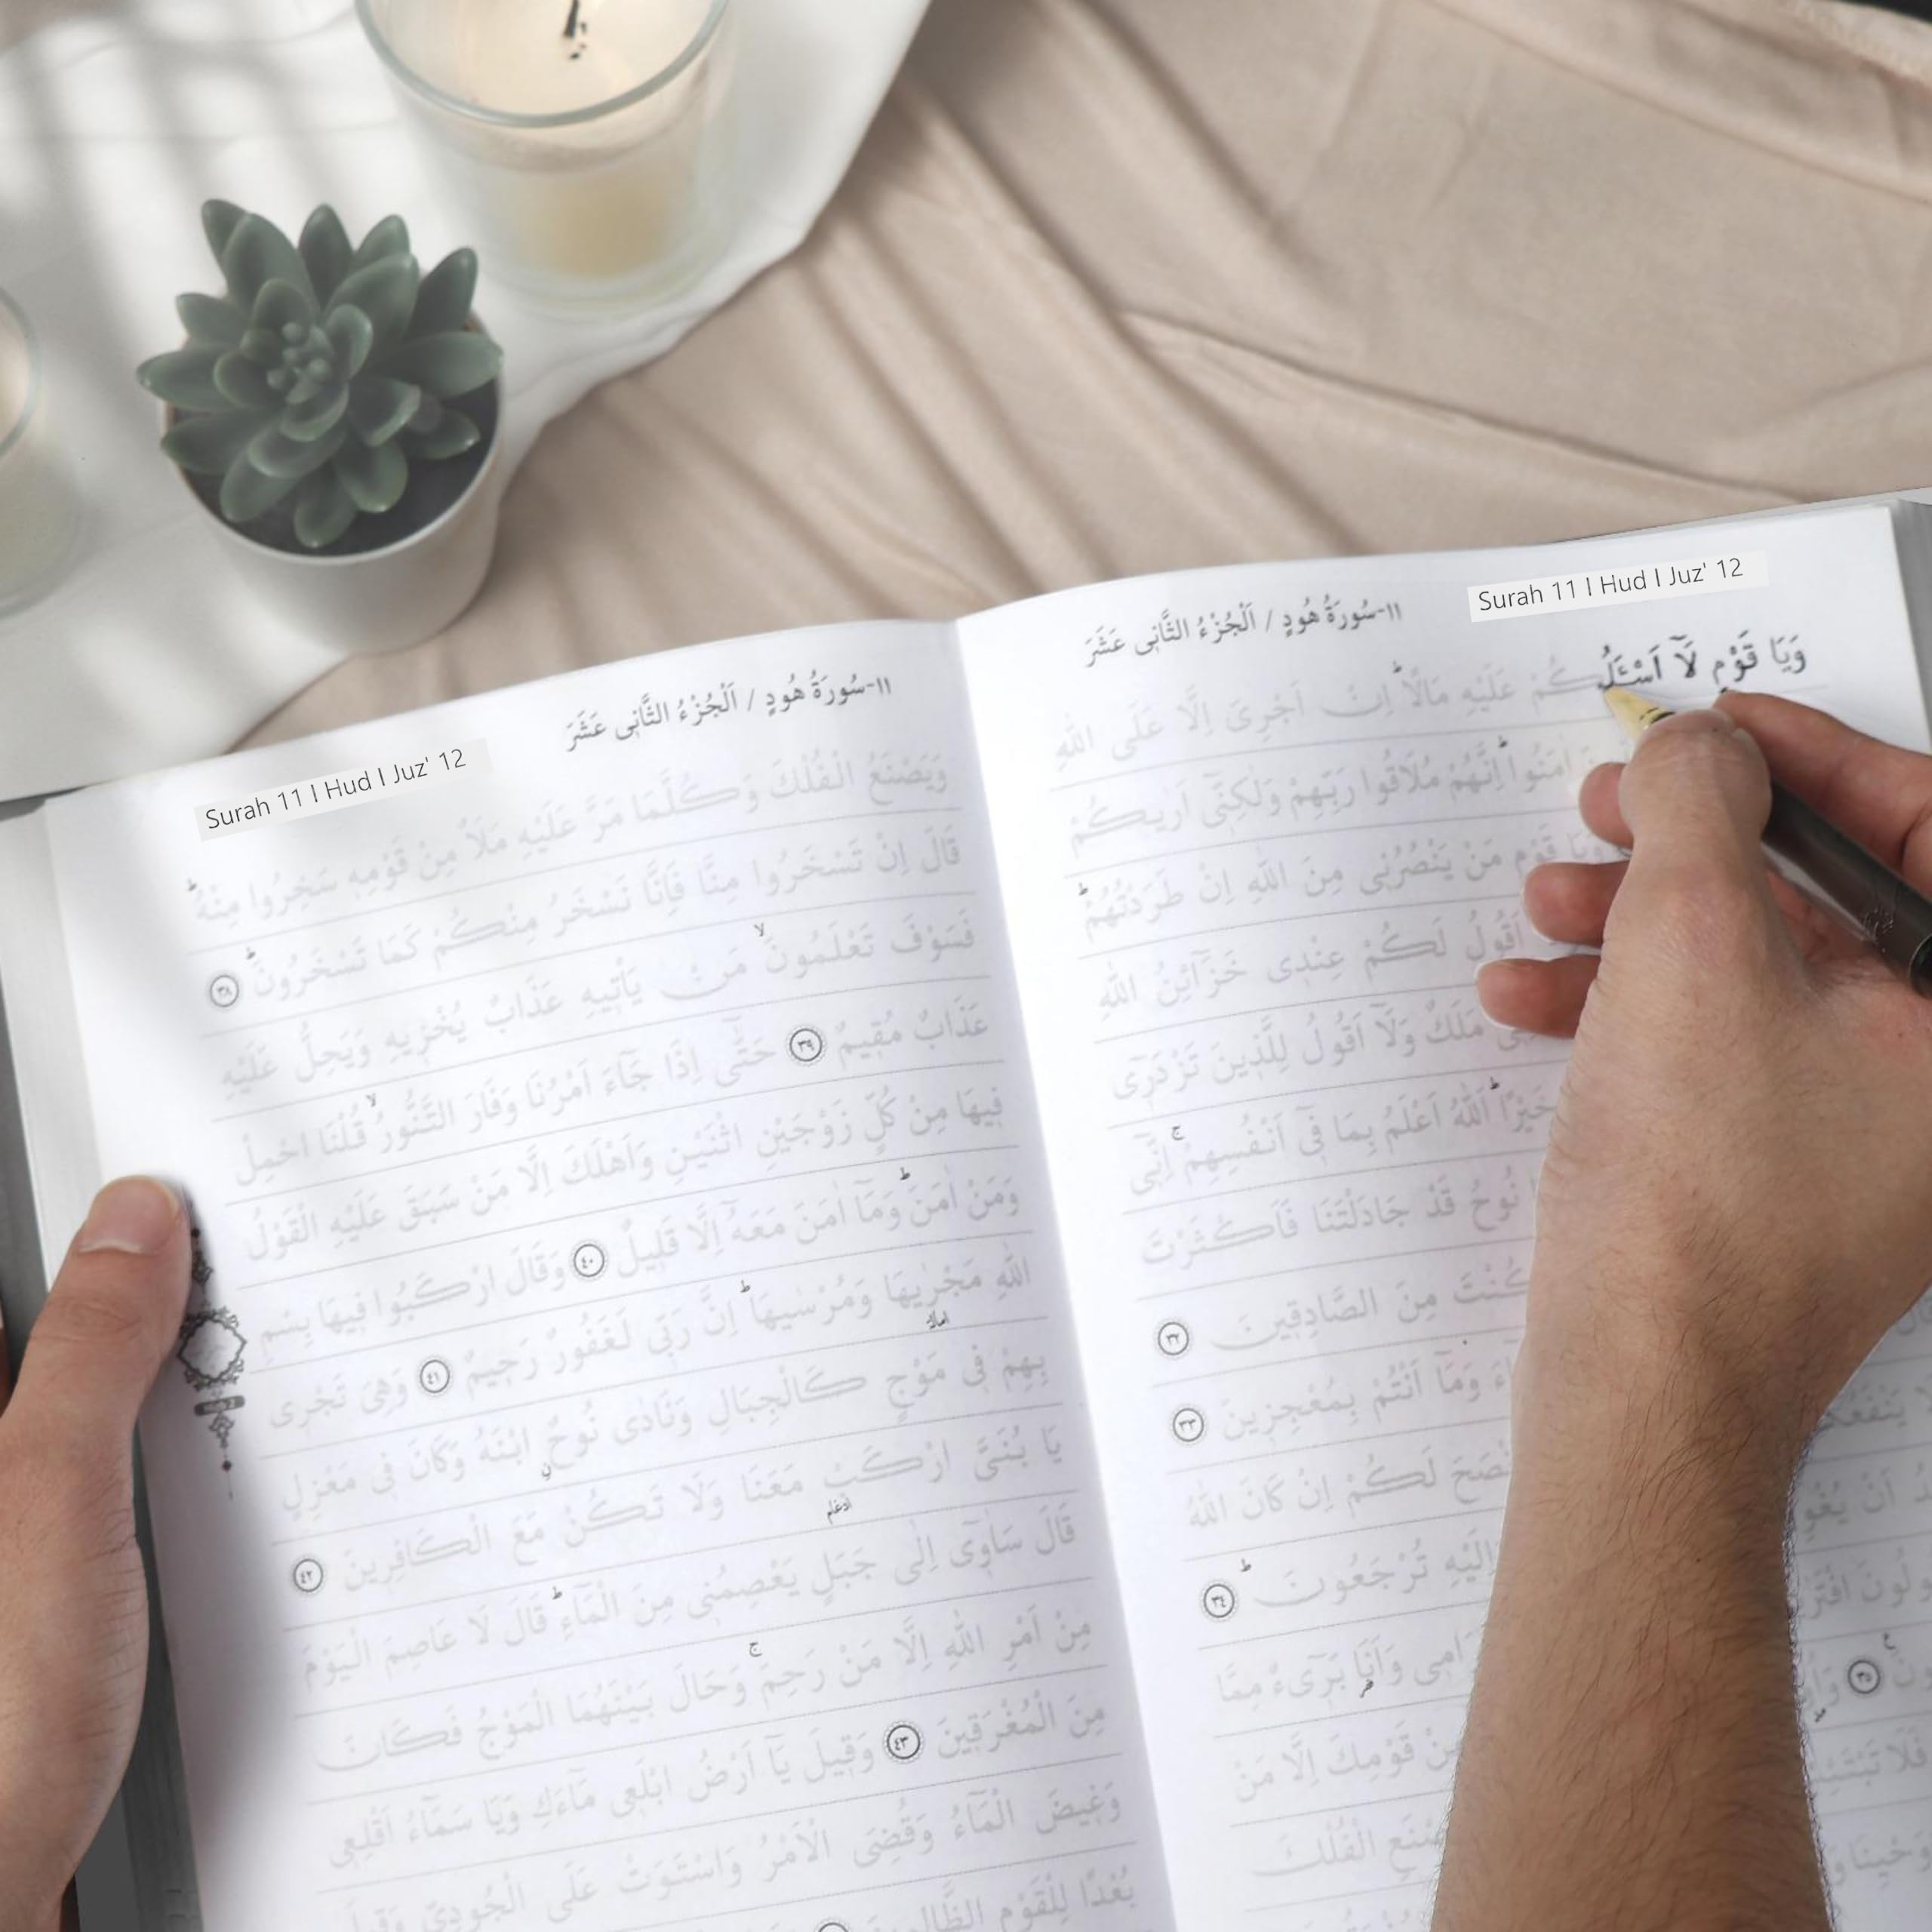 Surah 11 I Hud I Juz' 12
١١-سُورَةُ هُودٍ / اَلْجُزْءُ الثَّانِى عَشَرَ
وَيَا قَوْمِ لَآ اَسْـَٔلُكُمْ عَلَيْهِ مَالًاۜ اِنْ اَجْرِىَ اِلَّا عَلَى اللّٰهِ
اٰمَنُواۜ اِنَّهُمْ مُلَاقُوا رَبِّهِمْ وَلٰكِنِّٓى اَرٰيكُمْ
وَيَا قَوْمِ مَنْ يَنْصُرُنِى مِنَ اللّٰهِ اِنْ طَرَدْتُهُمْۜ
اَقُولُ لَكُمْ عِنْدِى خَزَٓائِنُ اللّٰهِ
مَلَكٌ وَلَٓا اَقُولُ لِلَّذِينَ تَزْدَرِٓى
خَيْرًاۜ اَللّٰهُ اَعْلَمُ بِمَا فِٓى اَنْفُسِهِمْۚ اِنِّٓى
نُوحُ قَدْ جَادَلْتَنَا فَاَكْثَرْتَ
كُنْتَ مِنَ الصَّادِقِينَ ٣٢
وَمَٓا اَنْتُمْ بِمُعْجِزِينَ ٣٣
لَكُمْ اِنْ كَانَ اللّٰهُ
تُرْجَعُونَۜ ٣٤
وَاَنَا۬ بَرِٓىءٌ مِمَّا
قَوْمِكَ اِلَّا مَنْ
الْفُلْكَ
٣٥
Surah 11 I Hud I Juz' 12
١١-سُورَةُ هُودٍ / اَلْجُزْءُ الثَّانِى عَشَرَ
وَيَصْنَعُ الْفُلْكَ وَكُلَّمَا مَرَّ عَلَيْهِ مَلَاٌ مِنْ قَوْمِهِ سَخِرُوا مِنْهُۜ
قَالَ اِنْ تَسْخَرُوا مِنَّا فَاِنَّا نَسْخَرُ مِنْكُمْ كَمَا تَسْخَرُونَۜ ٣٨
فَسَوْفَ تَعْلَمُونَۙ مَنْ يَأْتِيهِ عَذَابٌ يُخْزِيهِ وَيَحِلُّ عَلَيْهِ
عَذَابٌ مُقِيمٌ ٣٩ حَتّٰٓى اِذَا جَٓاءَ اَمْرُنَا وَفَارَ التَّنُّورُۙ قُلْنَا احْمِلْ
فِيهَا مِنْ كُلٍّ زَوْجَيْنِ اثْنَيْنِ وَاَهْلَكَ اِلَّا مَنْ سَبَقَ عَلَيْهِ الْقَوْلُ
وَمَنْ اٰمَنَۜ وَمَٓا اٰمَنَ مَعَهُٓ اِلَّا قَلِيلٌ ٤٠ وَقَالَ ارْكَبُوا فِيهَا بِسْمِ
اللّٰهِ مَجْرٰيهَا وَمُرْسٰيهَاۜ اِنَّ رَبِّى لَغَفُورٌ رَحِيمٌ ٤١ وَهِىَ تَجْرِى
بِهِمْ فِى مَوْجٍ كَالْجِبَالِ وَنَادٰى نُوحٌ ابْنَهُ وَكَانَ فِى مَعْزِلٍ
يَا بُنَىَّ ارْكَبْ مَعَنَا وَلَا تَكُنْ مَعَ الْكَافِرِينَ ٤٢
قَالَ سَاٰوِٓى اِلٰى جَبَلٍ يَعْصِمُنِى مِنَ الْمَٓاءِۜ قَالَ لَا عَاصِمَ الْيَوْمَ
مِنْ اَمْرِ اللّٰهِ اِلَّا مَنْ رَحِمَۚ وَحَالَ بَيْنَهُمَا الْمَوْجُ فَكَانَ
مِنَ الْمُغْرَقِينَ ٤٣ وَقِيلَ يَٓا اَرْضُ ابْلَعِى مَٓاءَكِ وَيَا سَمَٓاءُ اَقْلِعِى
وَغِيضَ الْمَٓاءُ وَقُضِىَ الْاَمْرُ وَاسْتَوَتْ عَلَى الْجُودِىِّ وَقِيلَ
بُعْدًا لِلْقَوْمِ